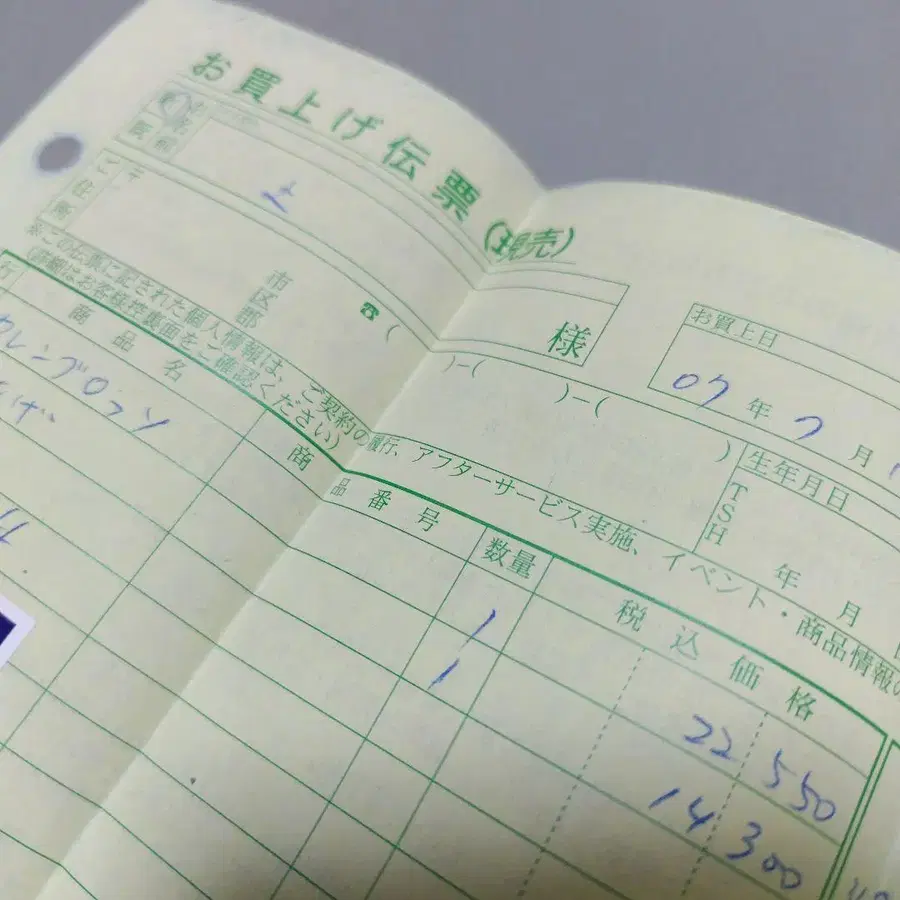 お買上げ伝票(現売)
上
様
お買上日
07年7月
ご住所
〒
市区郡
☎( )-( )-( )
生年月日
T
S
H
年 月
※この伝票に記された個人情報は、ご契約の履行、アフターサービス実施、イベント・商品情報の
(詳細はお客様控裏面をご確認ください)
商品名
商品番号
数量
税込価格
1
22 550
1
14 300